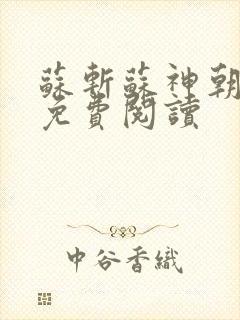 蘇斬蘇神朝
免費閱讀
中谷香織